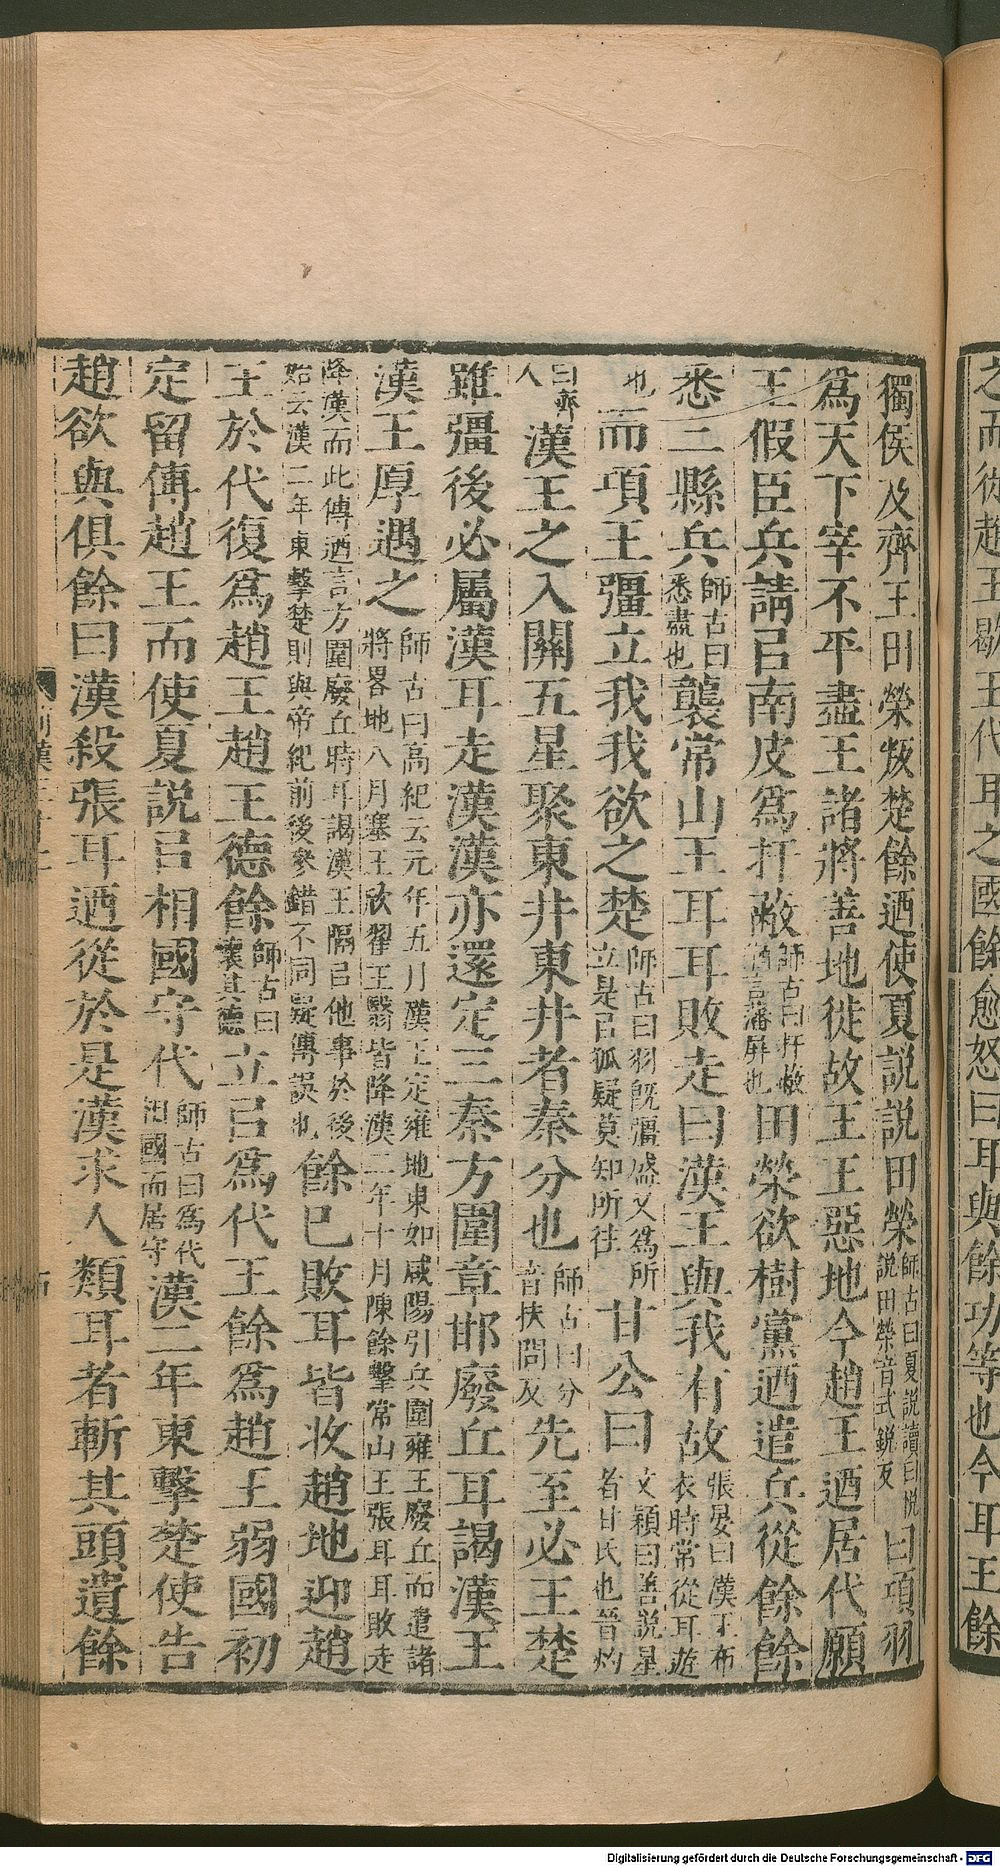 之而從趙王歇王代耳之國餘愈怒曰耳與餘功等也今耳王餘
獨侯及齊王田榮叛楚餘迺使夏説説田榮師古曰夏説讀曰悦説田榮音式鋭反曰項羽
爲天下宰不平盡王諸將善地徙故王王惡地今趙王迺居代願
王假臣兵請㠯南皮爲扞蔽師古曰扞蔽猶言藩屏也田榮欲樹黨迺遣兵從餘餘
悉三縣兵師古曰悉盡也襲常山王耳耳敗走曰漢王與我有故張晏曰漢王布衣時常從耳遊
也而項王彊立我我欲之楚師古曰羽旣彊盛又爲所立是㠯狐疑莫知所往甘公曰文穎曰善説星者甘氏也晉灼
曰齊人漢王之入關五星聚東井東井者秦分也師古曰分音扶問反先至必王楚
雖彊後必屬漢耳走漢漢亦還定三秦方圍章邯廢丘耳謁漢王
漢王厚遇之師古曰高紀云元年五月漢王定雍地東如咸陽引兵圍雍王廢丘而遣諸將畧地八月塞王欣翟王翳皆降漢二年十月陳餘擊常山王張耳耳敗走
降漢而此傳迺言方圍廢丘時耳謁漢王隔㠯他事於後始云漢二年東擊楚則與帝紀前後參錯不同疑傳誤也餘已敗耳皆收趙地迎趙
王於代復爲趙王趙王德餘師古曰懷其德立㠯爲代王餘爲趙王弱國初
定留傅趙王而使夏説㠯相國守代師古曰爲代相國而居守漢二年東擊楚使告
趙欲與俱餘曰漢殺張耳迺從於是漢求人類耳者斬其頭遺餘
Digitalisierung gefördert durch die Deutsche Forschungsgemeinschaft - DFG